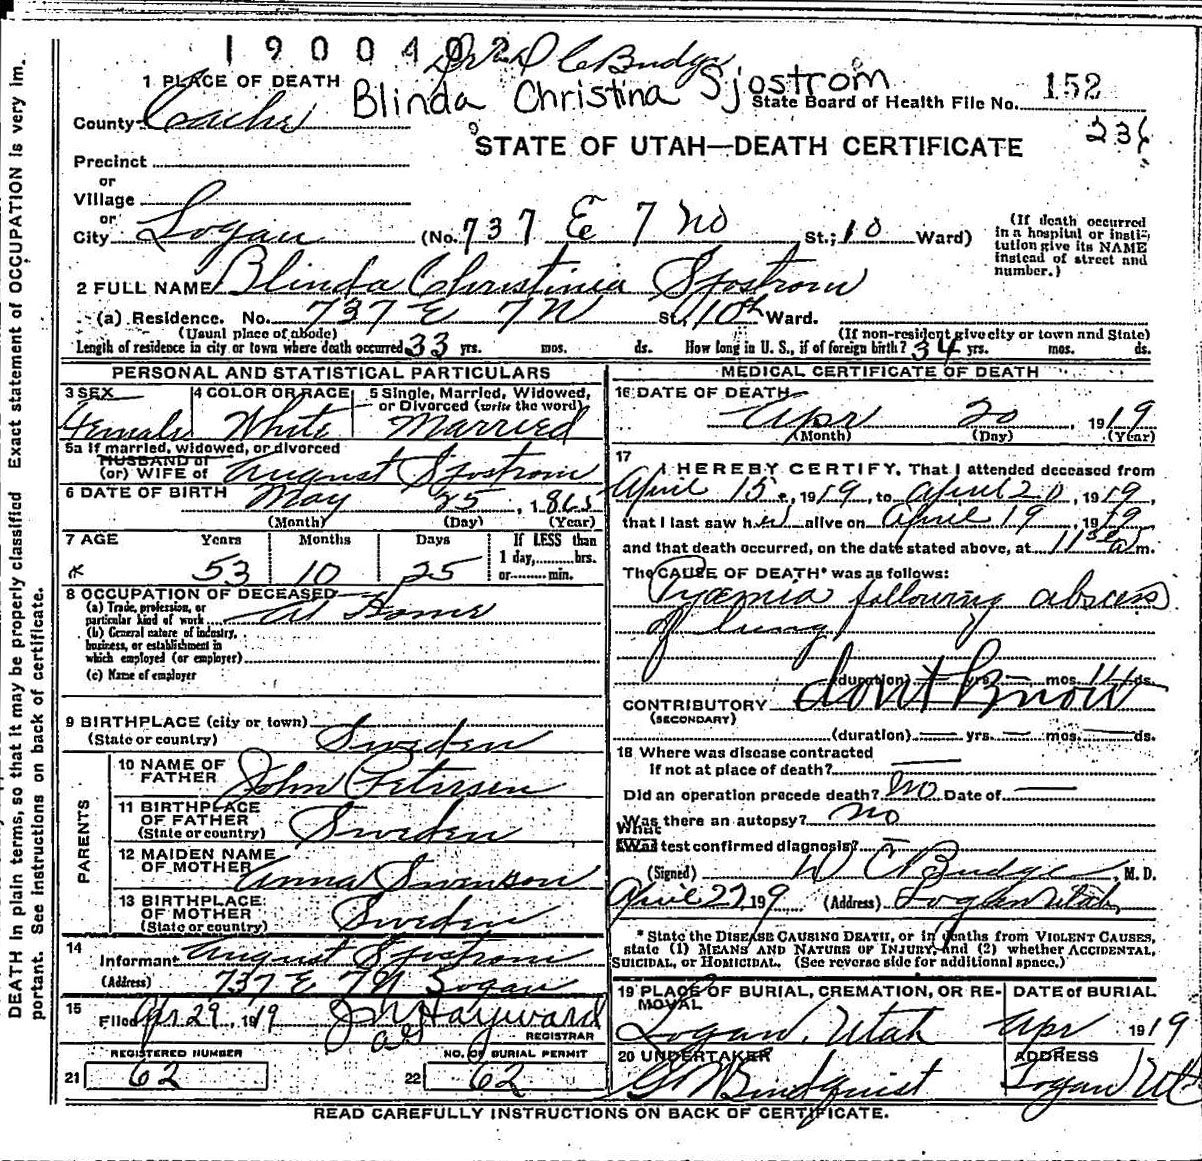 190040
Dr. D C Budge
1 PLACE OF DEATH
Blinda Christina Sjostrom
State Board of Health File No. 152
County Cache
236
STATE OF UTAH—DEATH CERTIFICATE
Precinct
or
Village
or
City Logan (No. 737 E 7 No St.; 10 Ward)
(If death occurred in a hospital or institution give its NAME instead of street and number.)
2 FULL NAME Blinda Christinia Sjostrom
(a) Residence. No. 737 E 7N St., 10th Ward.
(Usual place of abode) (If non-resident give city or town and State)
Length of residence in city or town where death occurred 33 yrs. mos. ds. How long in U. S., if of foreign birth? 34 yrs. mos. ds.
PERSONAL AND STATISTICAL PARTICULARS
3 SEX Female
4 COLOR OR RACE White
5 Single, Married, Widowed, or Divorced (write the word) Married
5a If married, widowed, or divorced
HUSBAND of
(or) WIFE of August Sjostrom
6 DATE OF BIRTH May 25, 1865
(Month) (Day) (Year)
7 AGE Years Months Days If LESS than
1 day, hrs.
53 10 25 or min.
8 OCCUPATION OF DECEASED
(a) Trade, profession, or
particular kind of work At Home
(b) General nature of industry,
business, or establishment in
which employed (or employer)
(c) Name of employer
9 BIRTHPLACE (city or town)
(State or country) Sweden
PARENTS
10 NAME OF
FATHER John Petersen
11 BIRTHPLACE
OF FATHER
(State or country) Sweden
12 MAIDEN NAME
OF MOTHER Anna Swenson
13 BIRTHPLACE
OF MOTHER
(State or country) Sweden
14
Informant August Sjostrom
(Address) 737 E 7N Logan
15
Filed Apr 29, 1919 J N Hayward
REGISTRAR
REGISTERED NUMBER
21 62
NO. OF BURIAL PERMIT
22 62
MEDICAL CERTIFICATE OF DEATH
16 DATE OF DEATH
Apr 20, 1919
(Month) (Day) (Year)
17
I HEREBY CERTIFY, That I attended deceased from
April 15, 1919, to April 20, 1919,
that I last saw her alive on April 19, 1919
and that death occurred, on the date stated above, at 11 30 a m.
The CAUSE OF DEATH* was as follows:
Pyæmia following abscess
of lung
(duration) yrs. mos. ds.
CONTRIBUTORY dont Know
(SECONDARY)
(duration) — yrs. — mos. — ds.
18 Where was disease contracted
If not at place of death? —
Did an operation precede death? No Date of —
Was there an autopsy? No
What
Was test confirmed diagnosis? —
(Signed) Budge, M. D.
April 27, 1919 (Address) Logan Utah,
* State the DISEASE CAUSING DEATH, or in deaths from VIOLENT CAUSES,
state (1) MEANS AND NATURE OF INJURY, and (2) whether ACCIDENTAL,
SUICIDAL, or HOMICIDAL. (See reverse side for additional space.)
19 PLACE OF BURIAL, CREMATION, OR RE-
MOVAL
Logan, Utah
DATE of BURIAL
Apr 1919
20 UNDERTAKER
Lindquist
ADDRESS
Logan Ut
READ CAREFULLY INSTRUCTIONS ON BACK OF CERTIFICATE.
DEATH in plain terms, so that it may be properly classified Exact statement of OCCUPATION is very im-
portant. See instructions on back of certificate.